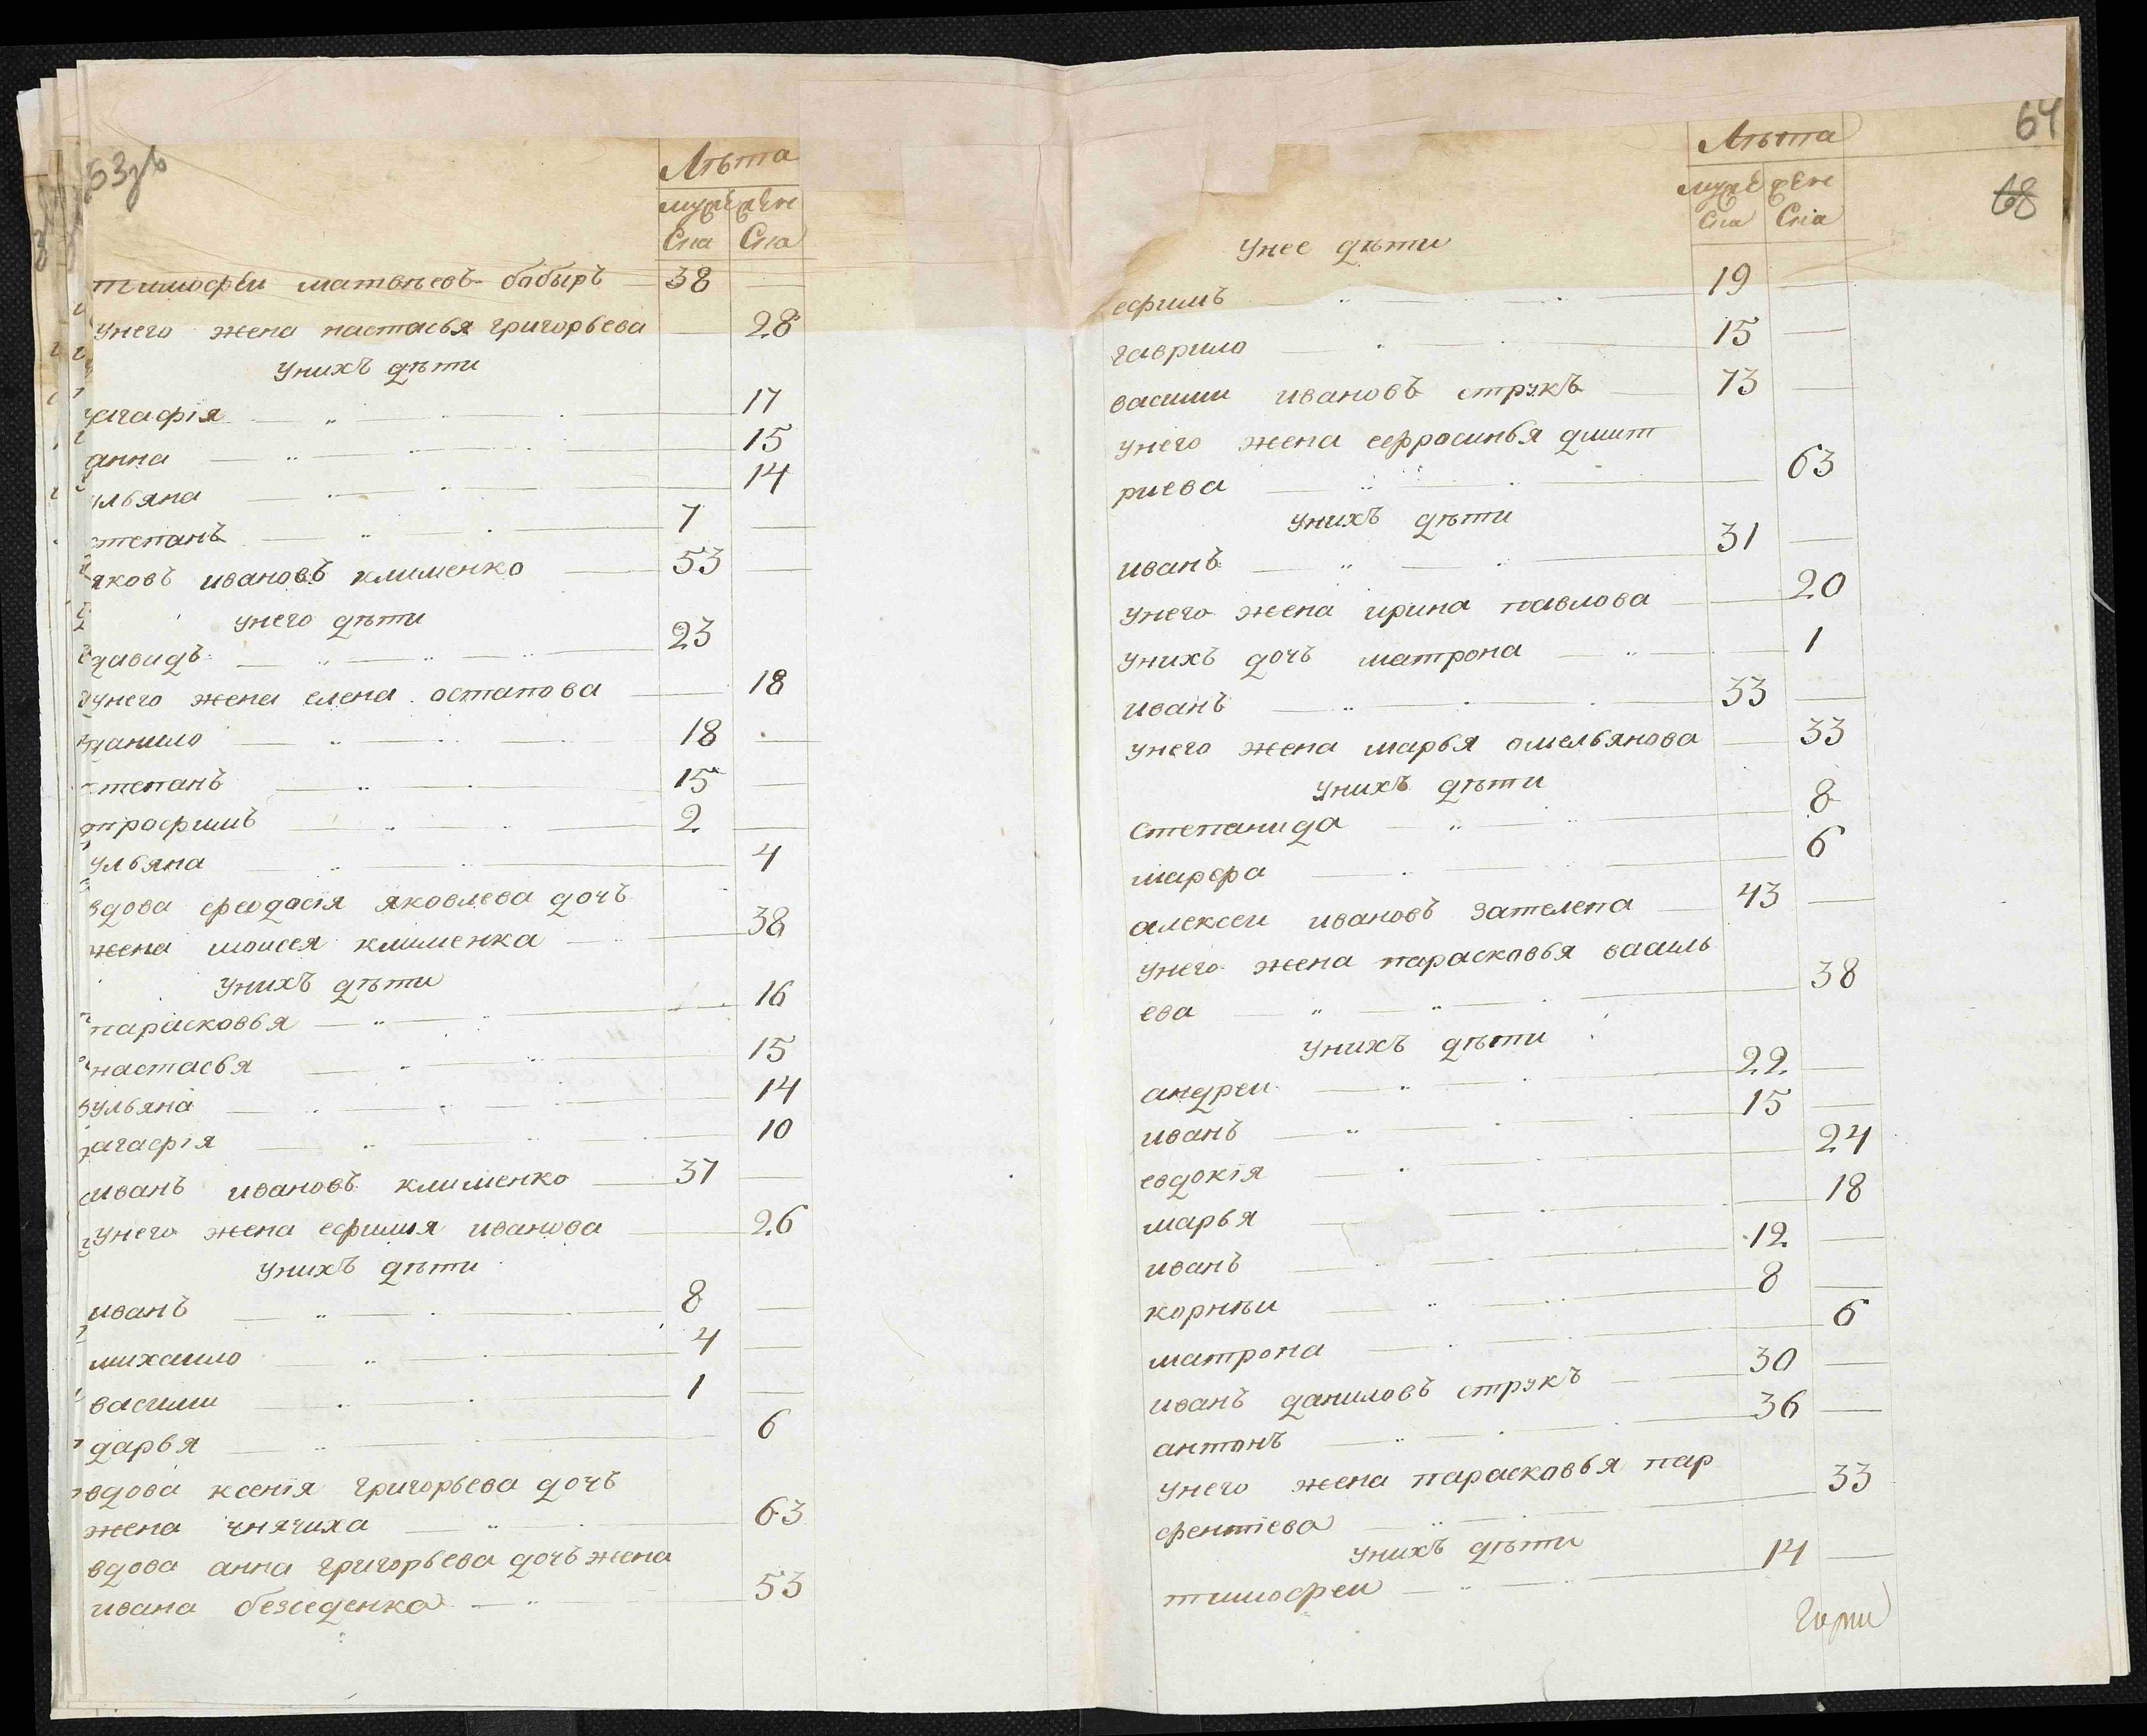 63зв
Лѣта
муже жен
Ска Ска
тимофеи матвѣевъ бабыръ 38
унего жена настасья григорьева 28
унихъ дѣти
агафія 17
анна 15
ульяна 14
степанъ 7
яковъ ивановъ клименко 53
унего дѣти
давидъ 23
унего жена елена остапова 18
данило 18
степанъ 15
трофимъ 2
ульяна 4
вдова феодосія яковлева дочь
жена моисея клименка 38
унихъ дѣти
парасковья 16
настасья 15
ульяна 14
агафія 10
иванъ ивановъ клименко 37
унего жена ефимія иванова 26
унихъ дѣти
иванъ 8
михаило 4
васили 1
дарья 6
вдова ксенія григорьева дочь
жена чнячиха 63
вдова анна григорьева дочь жена
ивана безеденка 53
64
68
Лѣта
муже жен
Ска Ска
унее дѣти
ефимъ 19
гаврило 15
васили ивановъ струкъ 73
унего жена ефросинья дмит
риева 63
унихъ дѣти
иванъ 31
унего жена ирина павлова 20
унихъ дочь матрона 1
иванъ 33
унего жена марья омельянова 33
унихъ дѣти
степанида 8
марфа 6
алексеи ивановъ зателепа 43
унего жена парасковья василь
ева 38
унихъ дѣти
андреи 22
иванъ 15
евдокія 24
марья 18
иванъ 12
корнѣи 8
матрона 6
иванъ даниловъ струкъ 30
антонъ 36
унего жена парасковья пар
фентіева 33
унихъ дѣти
тимофеи 14